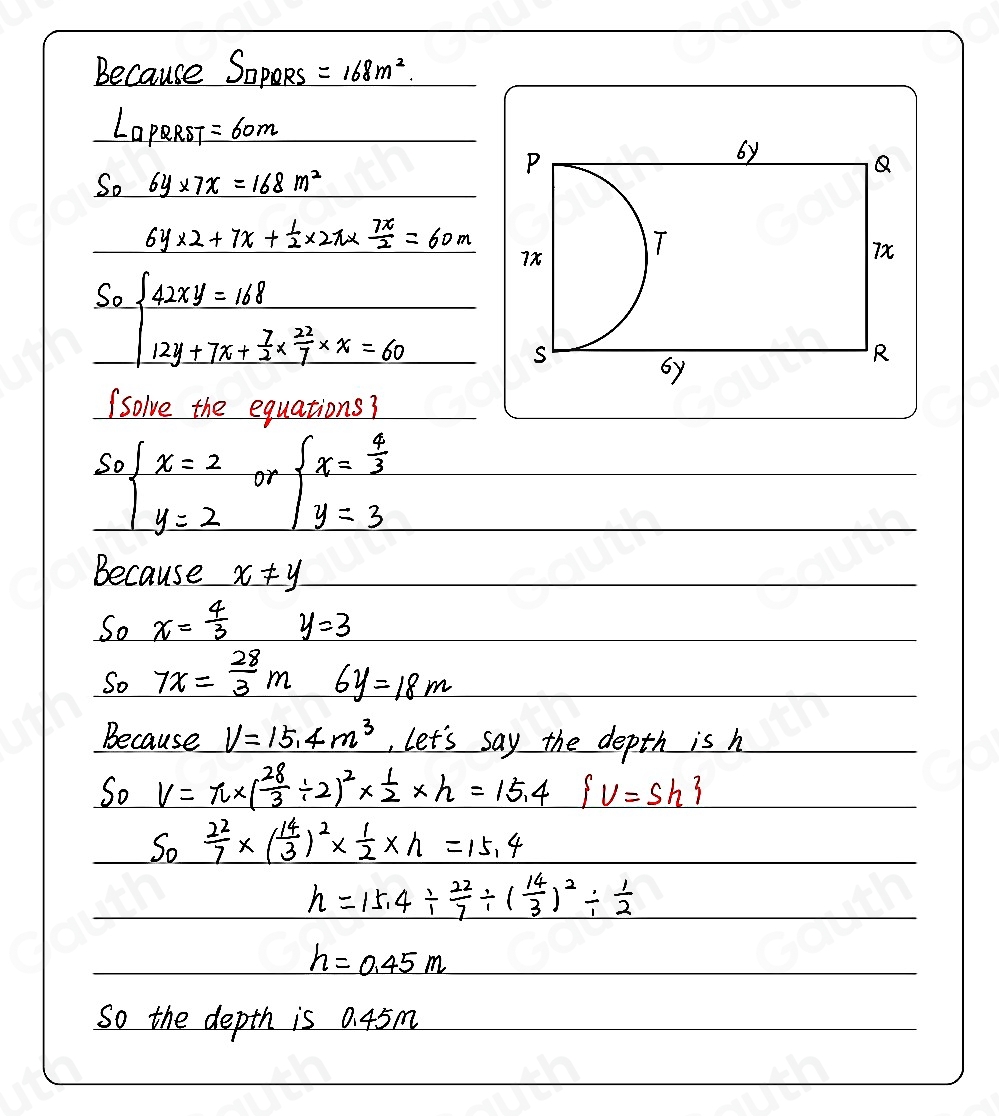 Because S▱PQRS = 168m².
L▱PQRST = 60m
So 6y × 7x = 168 m²
6y × 2 + 7x + 1/2 × 2π × 7x/2 = 60m
So { 42xy = 168
12y + 7x + 7/2 × 22/7 × x = 60
{Solve the equations}
So { x = 2 or { x = 4/3
y = 2 y = 3
Because x ≠ y
So x = 4/3 y = 3
So 7x = 28/3 m 6y = 18 m
Because V = 15.4 m³, let's say the depth is h
So V = π × (28/3 ÷ 2)² × 1/2 × h = 15.4 {V = Sh}
So 22/7 × (14/3)² × 1/2 × h = 15.4
h = 15.4 ÷ 22/7 ÷ (14/3)² ÷ 1/2
h = 0.45 m
So the depth is 0.45m
P 6y Q
7x T 7x
S 6y R
Gauth